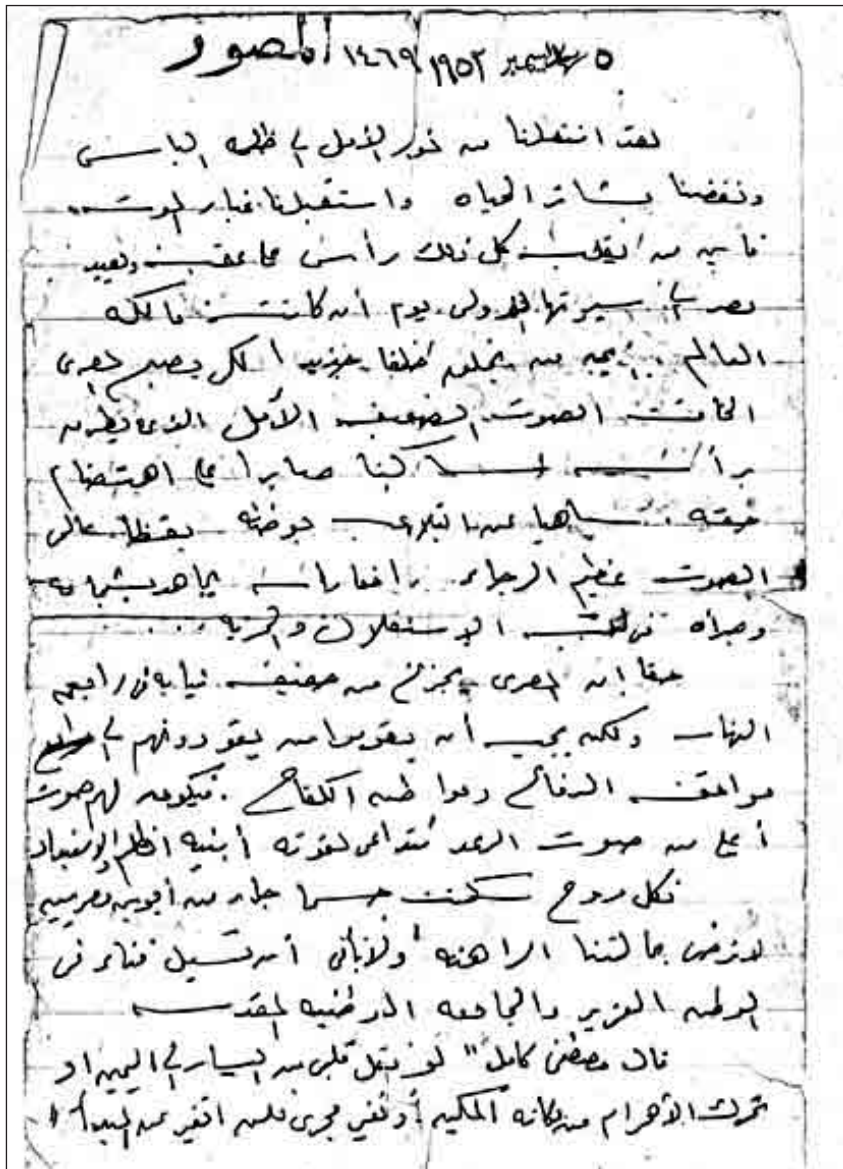 ٥ ديسمبر ١٩٥٢ ١٤٦٩ المصور
لقد انتقلنا من نور الأمل إلى ظلمة اليأس
ونفضنا بشائر الحياه واستقبلنا غبار الموت
فأين من يقلب كل ذلك رأس على عقب ويعيد
مصر إلى سيرتها الأولى يوم أن كانت مالكه
العالم .. أين من يخلق خلقا جديدا لكى يصبح المصرى
الخافت الصوت الضعيف الأمل الذى يطرق
برأسه ساكنا صابرا على اهتضام
حقه ساهيا عن التلاعب يقظا عالى
الصوت عظيم الرجاء رافعا رأسه يجاهد بشجاعه
وجرأه فى طلب الاستقلال والحريه ..
حقا ان المصرى يجزع من حفيف ثيابه فى رابعه
النهار ولكن يجب أن يقوم من يقودونهم إلى
مواقف الدفاع ومواطن الكفاح . فيكون لهم صوت
أعلى من صوت الرعد تتداعى لقوته أبنية الظلم والاستبداد
فكل روح سكنت جسما جاء من أبوين مصريين
لا ترضى حالتنا الراهنه ولا تأبى أن تسيل فناء فى
الوطن العزيز والجامعه الوطنيه المقدسه
قال مصطفى كامل " لو نقل قلبى من اليسار إلى اليمين او
تحرك الأهرام من مكانه المكين أو تغير مجرى فلن اتغير عن المبدأ "